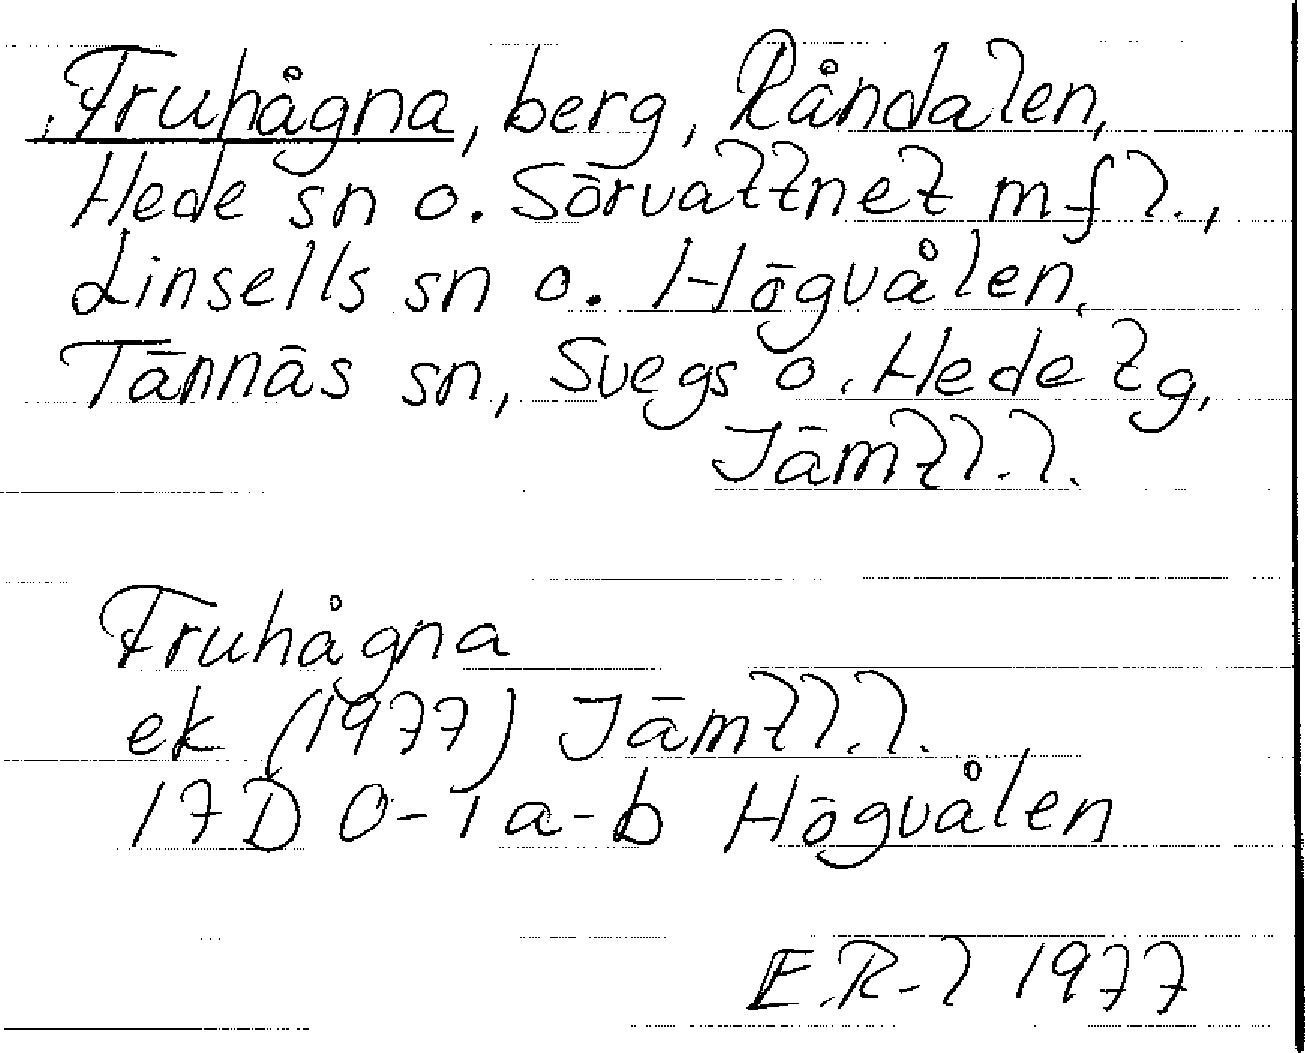 Fruhågna, berg, Råndalen,
Hede sn o. Sörvattnet mfl.,
Linsells sn o. Högvålen,
Tännäs sn, Svegs o. Hede tg,
Jämtl.l.
Fruhågna
ek (1977) Jämtl.l.
17D 0-1a-b Högvålen
E.R-l 1977